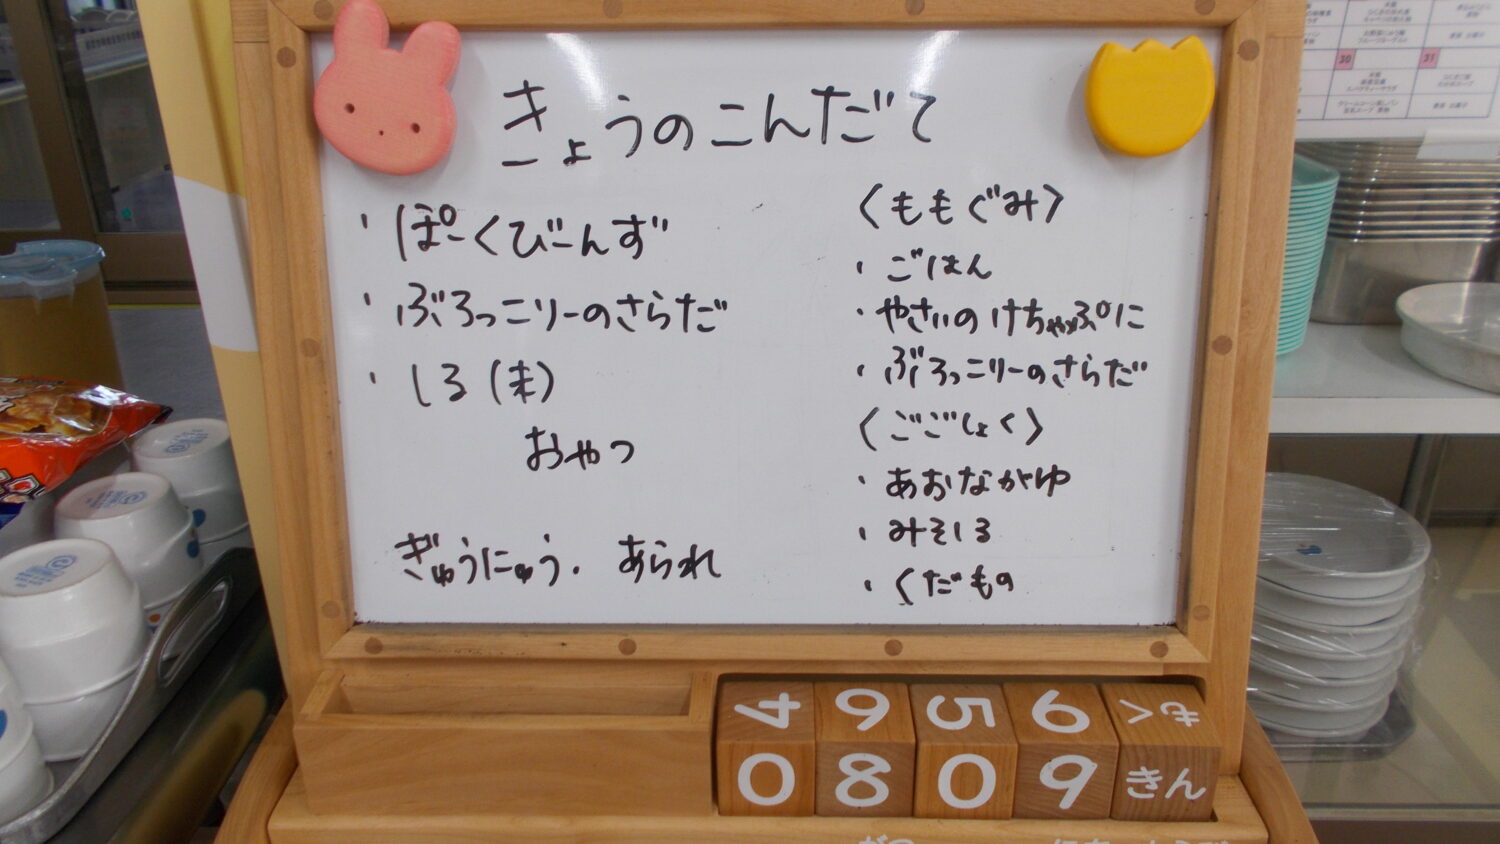 きょうのこんだて
・ぽーくびーんず
・ぶろっこりーのさらだ
・しる(末)
おやつ
ぎゅうにゅう.あられ
〈ももぐみ〉
・ごはん
・やさいのけちゃっぷに
・ぶろっこりーのさらだ
〈ごごしょく〉
・あおながゆ
・みそしる
・くだもの
4 9 5 6 もく
0 8 0 9 きん
30
31